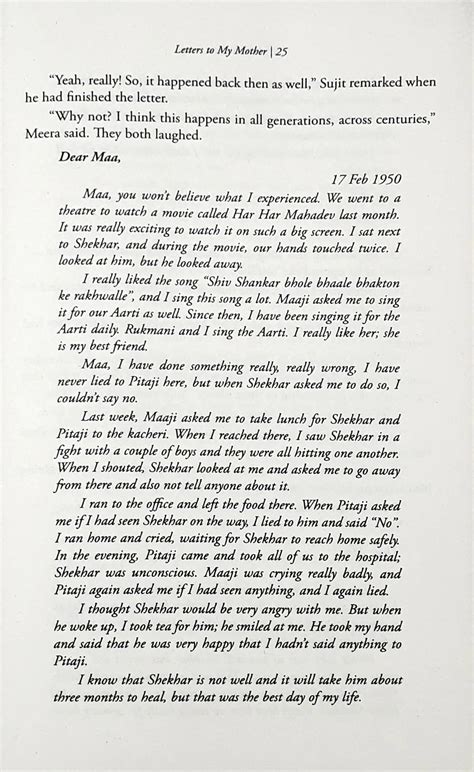 Letters to My Mother | 25
"Yeah, really! So, it happened back then as well," Sujit remarked when
he had finished the letter.
"Why not? I think this happens in all generations, across centuries,"
Meera said. They both laughed.
Dear Maa,
17 Feb 1950
Maa, you won't believe what I experienced. We went to a
theatre to watch a movie called Har Har Mahadev last month.
It was really exciting to watch it on such a big screen. I sat next
to Shekhar, and during the movie, our hands touched twice. I
looked at him, but he looked away.
I really liked the song "Shiv Shankar bhole bhaale bhakton
ke rakhwalle", and I sing this song a lot. Maaji asked me to sing
it for our Aarti as well. Since then, I have been singing it for the
Aarti daily. Rukmani and I sing the Aarti. I really like her; she
is my best friend.
Maa, I have done something really, really wrong, I have
never lied to Pitaji here, but when Shekhar asked me to do so, I
couldn't say no.
Last week, Maaji asked me to take lunch for Shekhar and
Pitaji to the kacheri. When I reached there, I saw Shekhar in a
fight with a couple of boys and they were all hitting one another.
When I shouted, Shekhar looked at me and asked me to go away
from there and also not tell anyone about it.
I ran to the office and left the food there. When Pitaji asked
me if I had seen Shekhar on the way, I lied to him and said "No".
I ran home and cried, waiting for Shekhar to reach home safely.
In the evening, Pitaji came and took all of us to the hospital;
Shekhar was unconscious. Maaji was crying really badly, and
Pitaji again asked me if I had seen anything, and I again lied.
I thought Shekhar would be very angry with me. But when
he woke up, I took tea for him; he smiled at me. He took my hand
and said that he was very happy that I hadn't said anything to
Pitaji.
I know that Shekhar is not well and it will take him about
three months to heal, but that was the best day of my life.